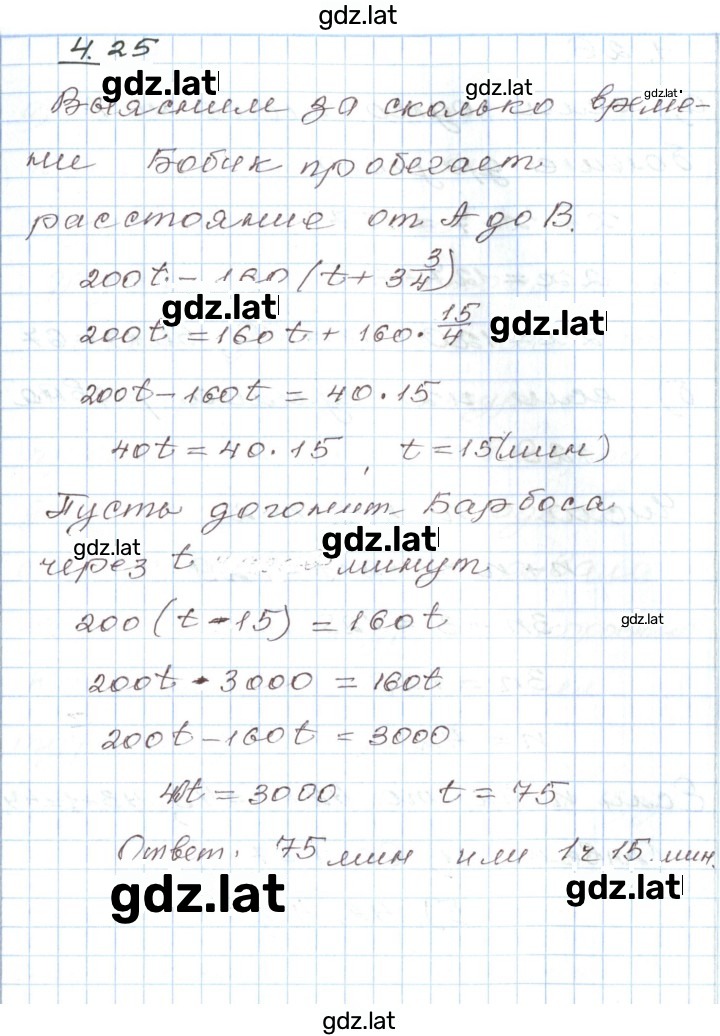 gdz.lat
4.25
gdz.lat gdz.lat gdz.lat
Выясним за сколько време-
ни Бобик пробегает
расстояние от А до В.
200t = 160 (t + 3 3/4)
gdz.lat gdz.lat
200t = 160t + 160 · 15/4
200t - 160t = 40 · 15
40t = 40 · 15, t = 15 (мин)
Пусть догонит Барбоса
gdz.lat gdz.lat
через t минут
200 (t - 15) = 160t
gdz.lat
200t - 3000 = 160t
200t - 160t = 3000
40t = 3000 t = 75
Ответ: 75 мин или 1ч 15 мин.
gdz.lat gdz.lat
gdz.lat